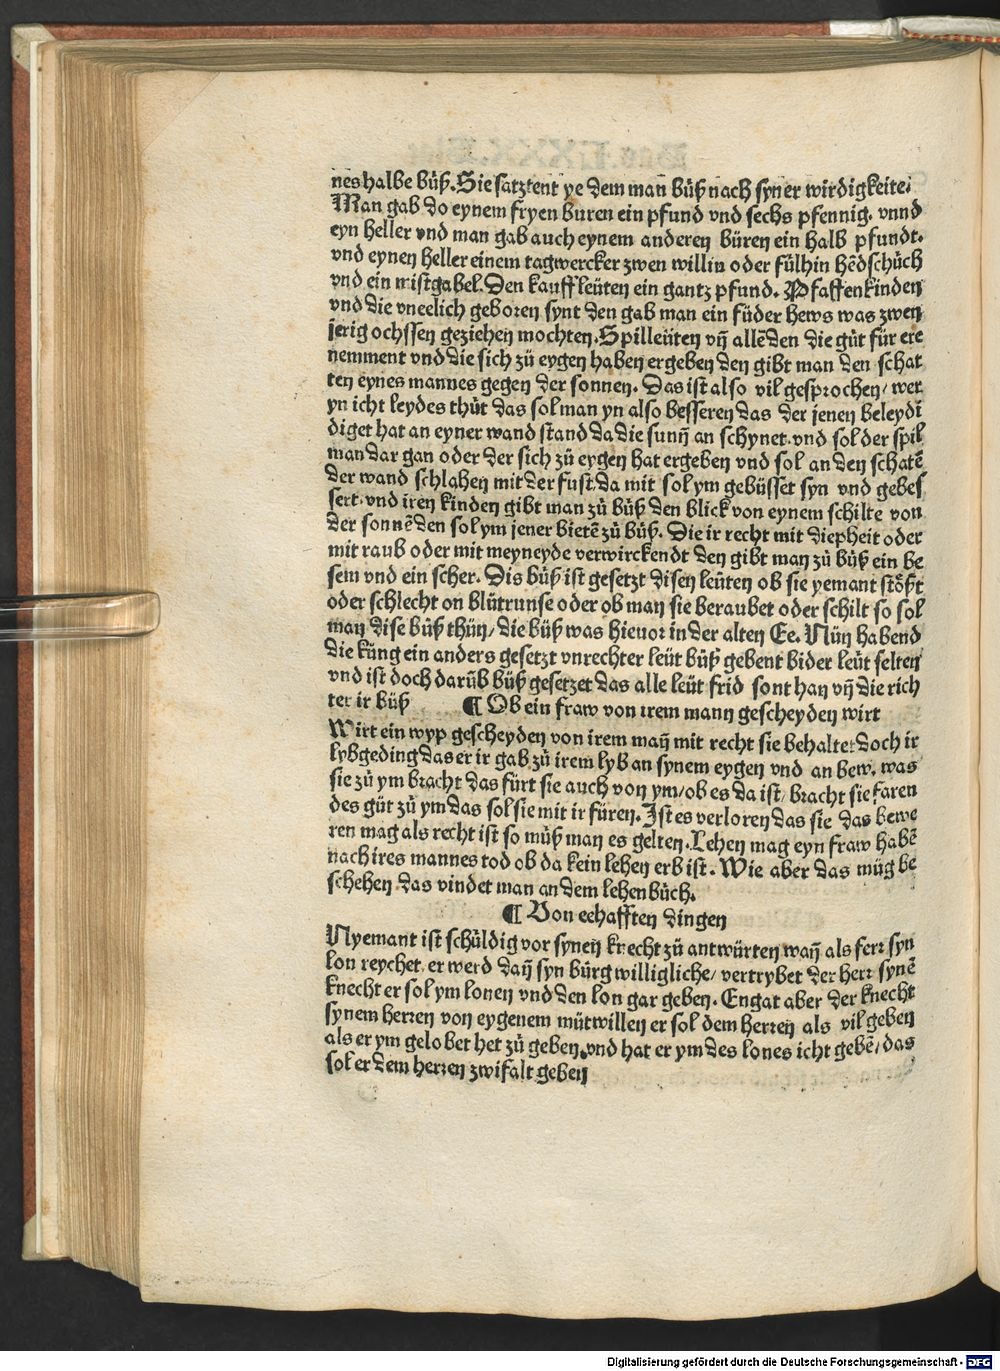 nes halbe büß. Sie satztent ye dem man büß nach syner wirdigkeite.
Man gab do eynem fryen buren ein pfund vnd sechs pfennig. vnnd
eyn heller vnd man gab auch eynem anderen büren ein halb pfundt.
vnd eynen heller einem tagwercker zwen willin oder fülhin hẽdschüch
vnd ein mistgabel. Den kauffleüten ein gantz pfund. Pfaffenkinden
vnd die vneelich geboren synt den gab man ein füder hews was zwen
jerig ochssen geziehen mochten. Spilleüten vñ allẽ den die güt für ere
nemment vnd die sich zü eygen haben ergeben den gibt man den schat
ten eynes mannes gegen der sonnen. Das ist also vil gesprochen/ wer
yn icht leydes thüt das sol man yn also besseren das der jenen beleydi
diget hat an eyner wand stand da die sunñ an schynet. vnd sol der spil
man dar gan oder der sich zü eygen hat ergeben vnd sol an den schatẽ
der wand schlahen mit der fust. da mit sol ym gebüsset syn vnd gebes
sert. vnd iren kinden gibt man zü büß den blick von eynem schilte von
der sonnẽ den sol ym jener bietẽ zü büß. Die ir recht mit diepheit oder
mit raub oder mit meyneyde verwirckendt den gibt man zü büß ein be
sem vnd ein scher. Dis büß ist gesetzt disen leüten ob sie yemant stößt
oder schlecht on blütrunse oder ob man sie beraubet oder schilt so sol
man dise büß thün/ die büß was hieuor in der alten Ee. Nün habend
die küng ein anders gesetzt vnrechter leüt büß gebent bider leüt selten
vnd ist doch darũb büß gesetzet das alle leüt frid sont han vñ die rich
ter ir büß ¶ Ob ein fraw von irem mann gescheyden wirt
Wirt ein wyp gescheyden von irem mañ mit recht sie behaltet doch ir
lybgeding das er ir gab zü irem lyb an synem eygen vnd an bew. was
sie zü ym bracht das fürt sie auch von ym/ ob es da ist/ bracht sie faren
des güt zü ym das sol sie mit ir füren. Ist es verloren das sie das bewe
ren mag als recht ist so müß man es gelten. Lehen mag eyn fraw habẽ
nach ires mannes tod ob da kein lehen erb ist. Wie aber das müg be
schehen das vindet man an dem lehenbüch.
¶ Von eehafften dingen
Nyemant ist schüldig vor synen knecht zü antwürten wañ als ferr syn
lon reychet. er werd dañ syn bürg willigliche/ vertrybet der herr synẽ
knecht er sol ym lonen vnd den lon gar geben. Engat aber der knecht
synem herren von eygenem mütwillen er sol dem herren als vil geben
als er ym gelobet het zü geben. vnd hat er ym des lones icht gebẽ/ das
sol er dem herren zwifalt geben
Digitalisierung gefördert durch die Deutsche Forschungsgemeinschaft - DFG